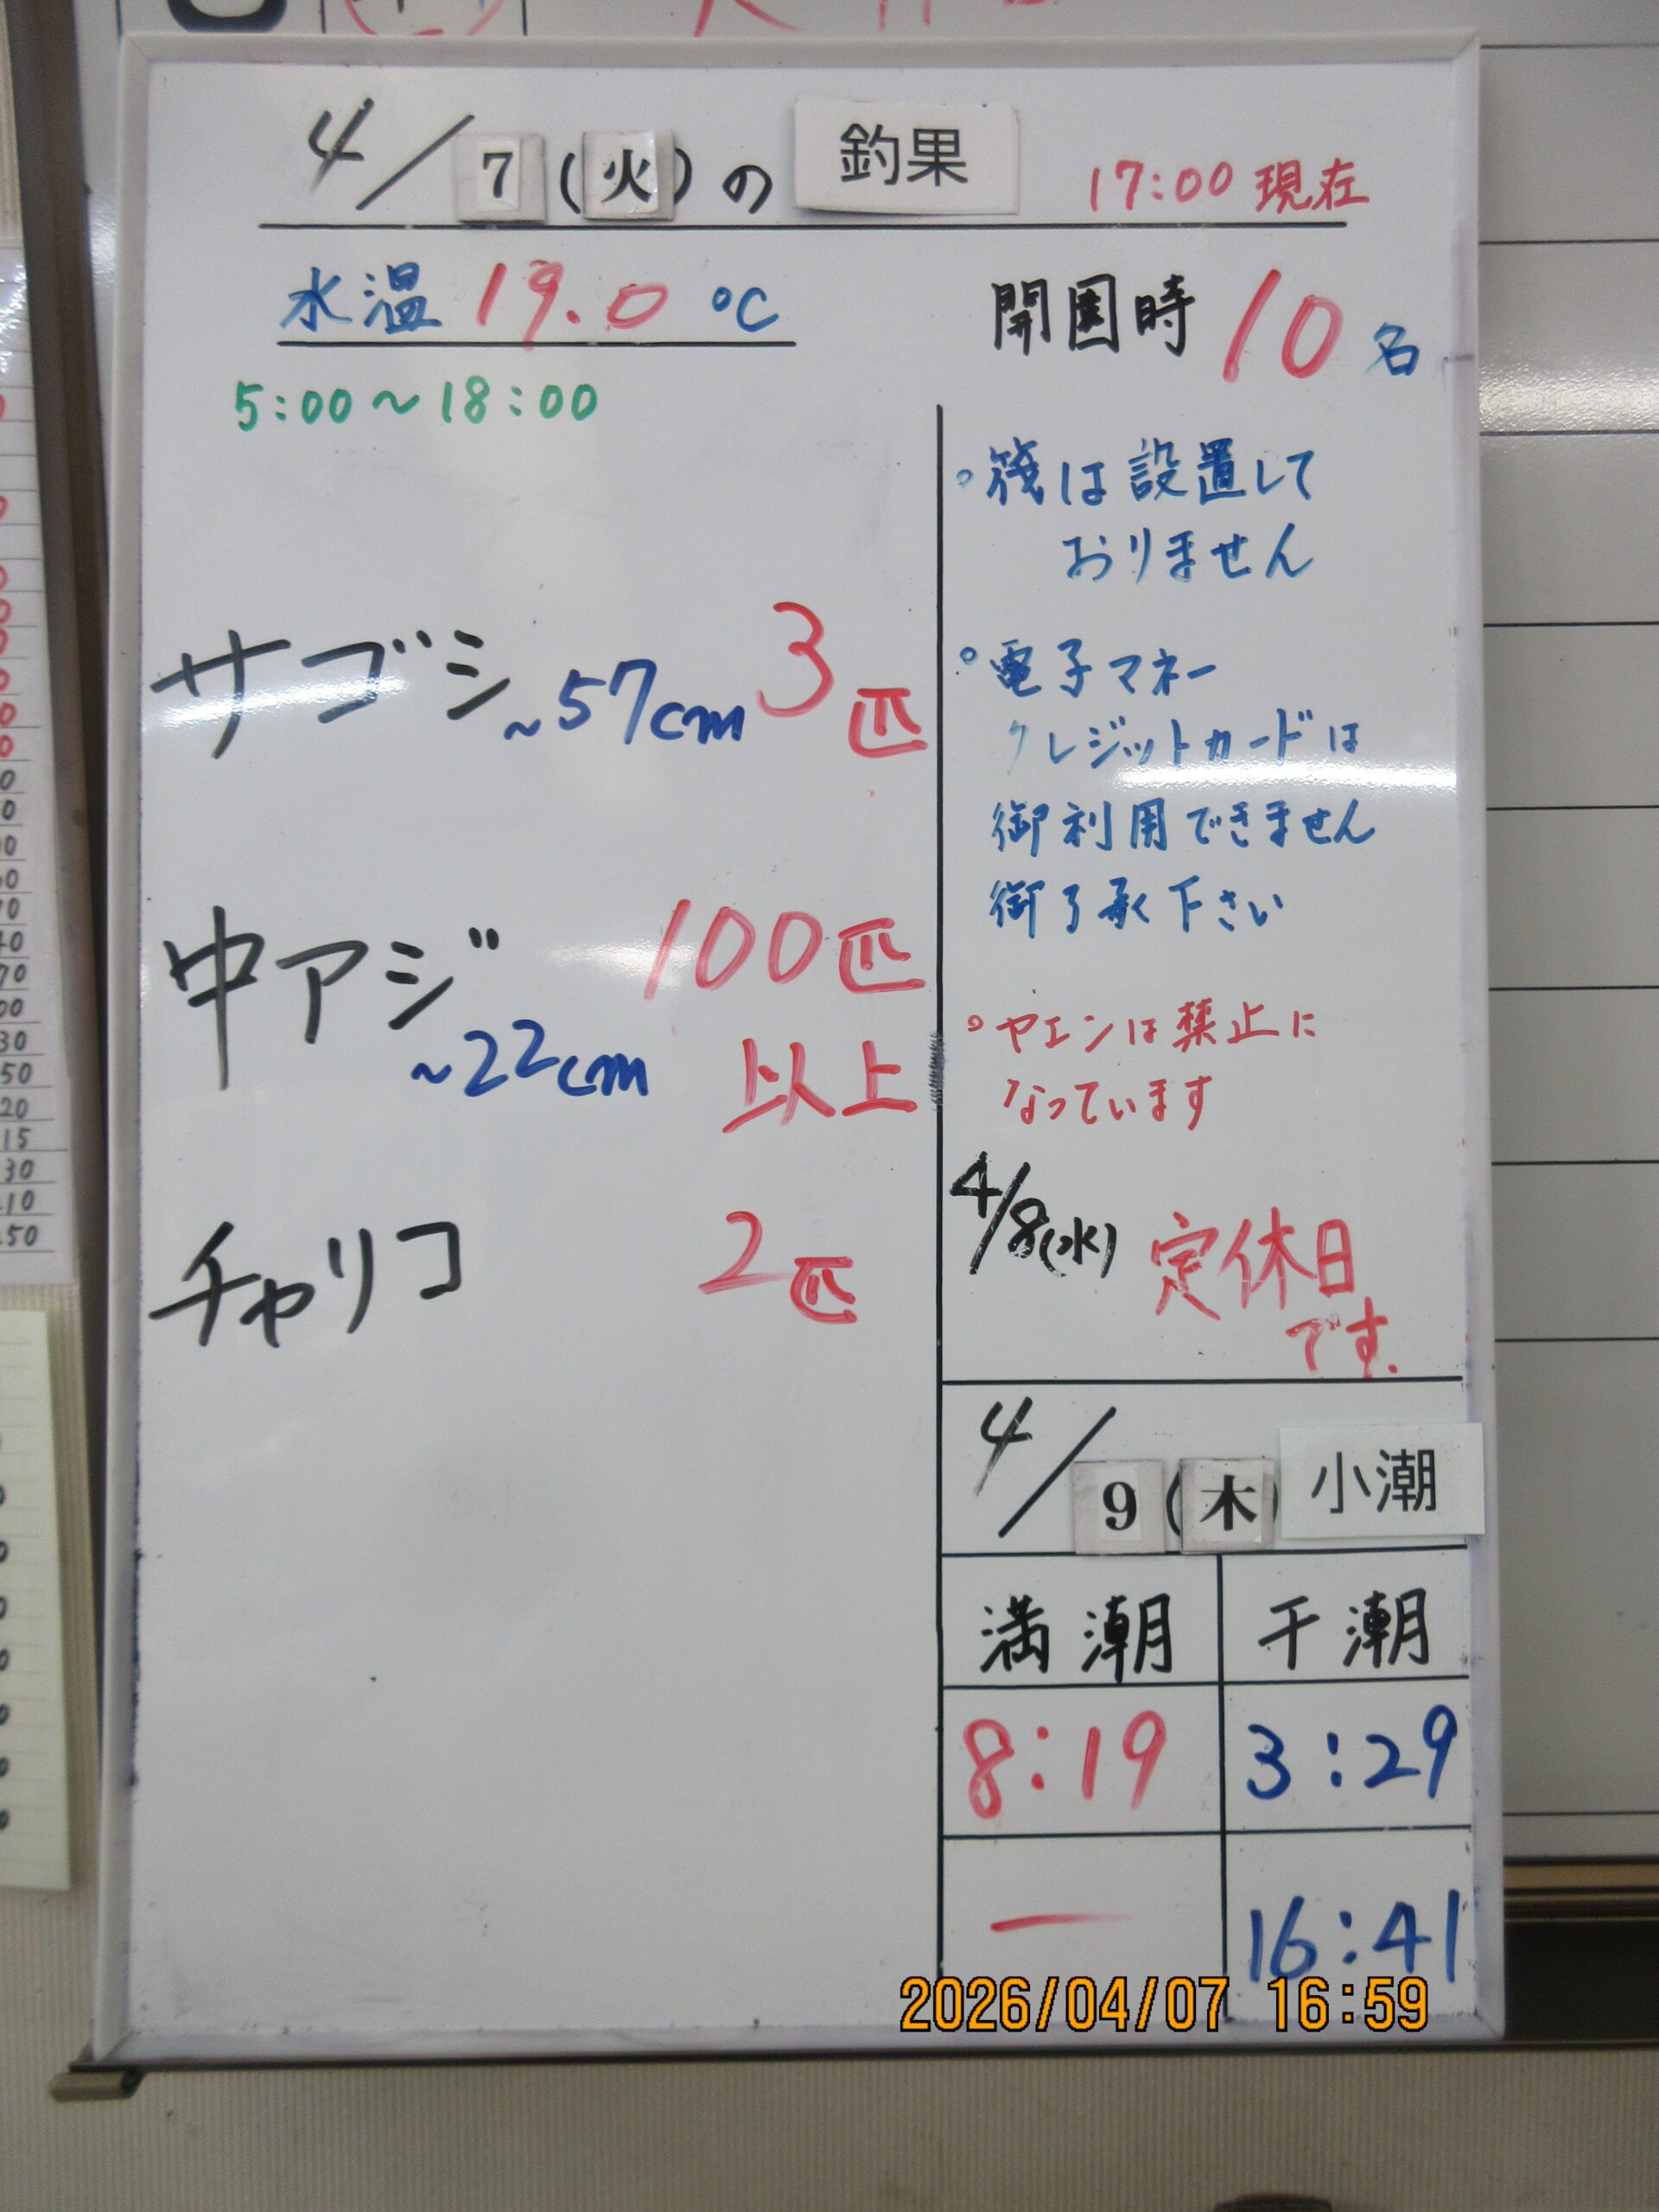 4/7(火)の 釣果 17:00 現在
水温 19.0 ℃
開園時 10名
5:00～18:00
サゴシ ~57cm 3匹
中アジ ~22cm 100匹
以上
チャリコ 2匹
。筏は設置して
おりません
。電子マネー
クレジットカードは
御利用できません
御了承下さい
。ヤエンは禁止に
なっています
4/8(水) 定休日
です.
4/9(木) 小潮
満潮 干潮
8:19 3:29
ー 16:41
2026/04/07 16:59